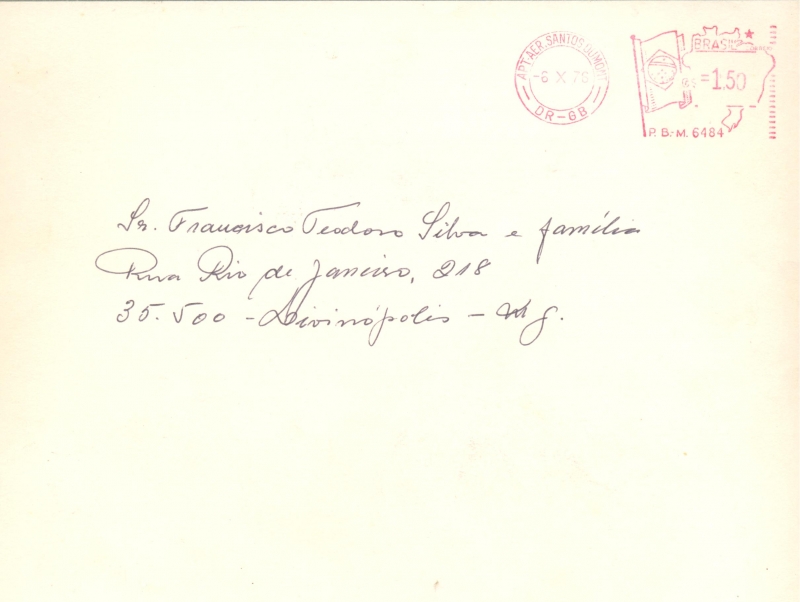 APT.AER.SANTOS DUMONT
-6 X 76
DR-GB
BRASIL
=1.50
P.B.M. 6484
Sr. Francisco Teodoro Silva e família
Rua Rio de Janeiro, 218
35.500 - Divinópolis - Mg.